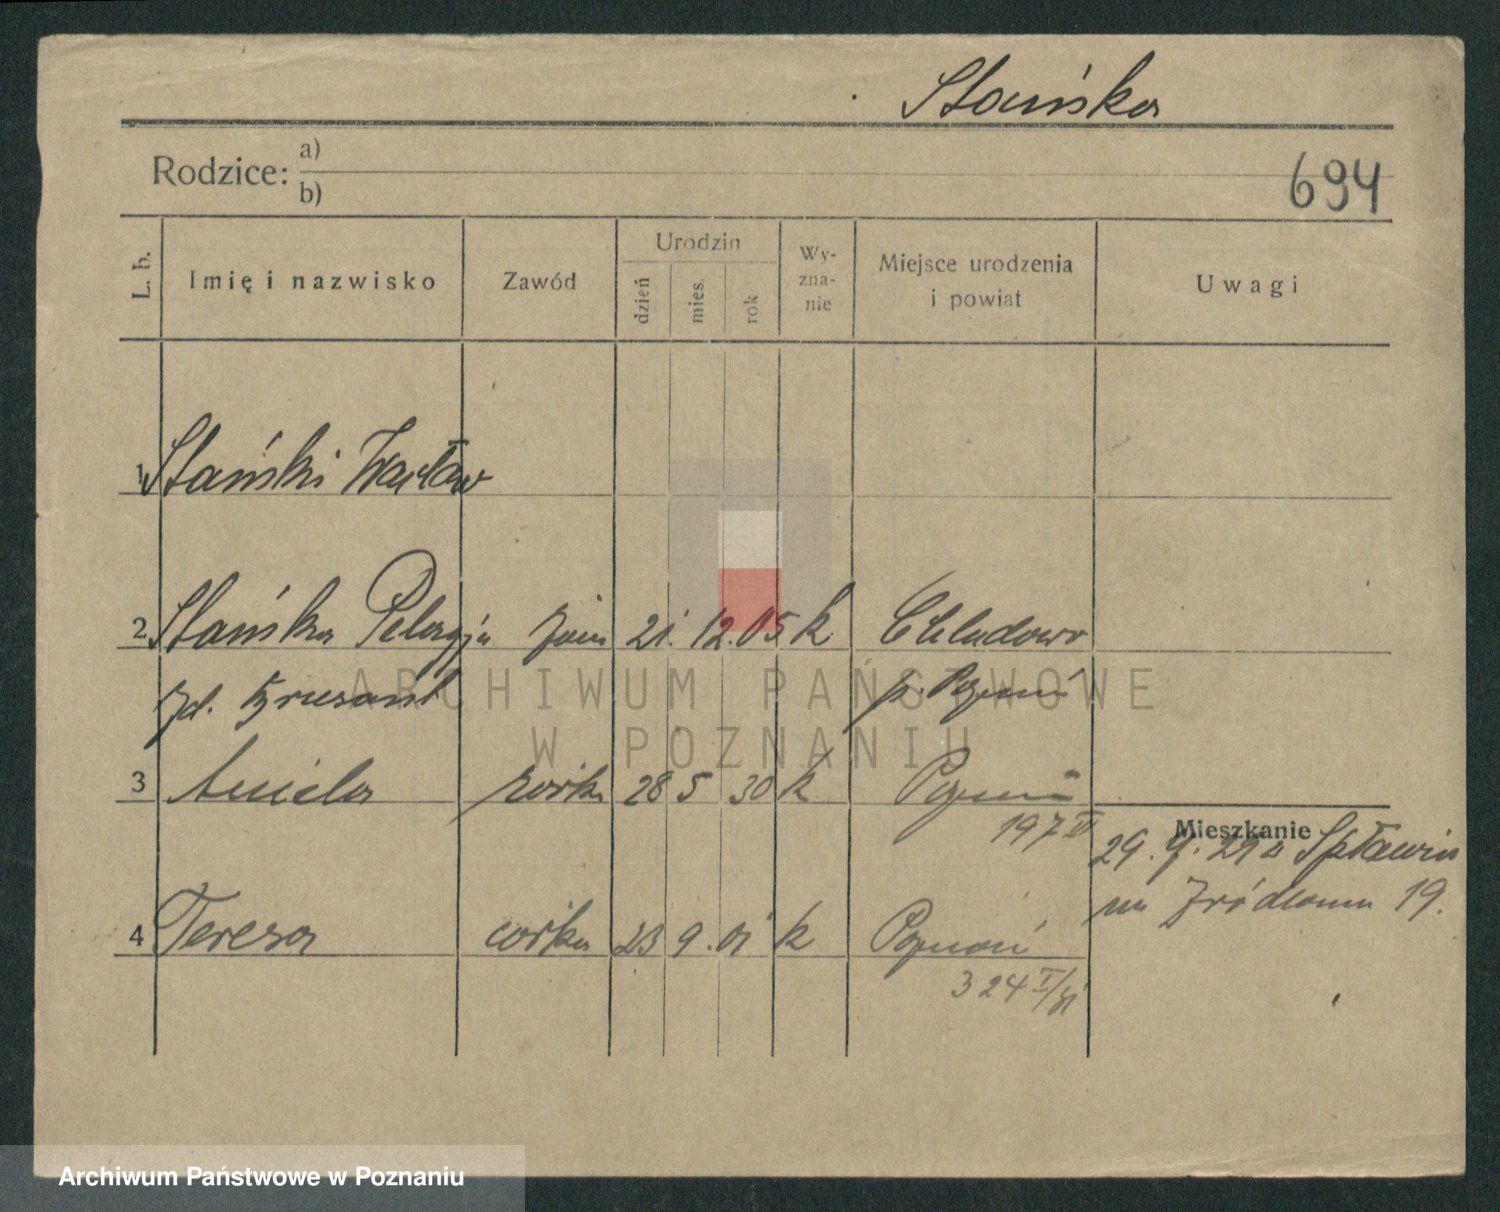 Stańska
Rodzice: a)
b)
694
L. b.
Imię i nazwisko
Zawód
Urodzin
dzień
mies.
rok
Wy-
zna-
nie
Miejsce urodzenia
i powiat
Uwagi
1 Stański Wacław
2 Stańska Pelagja 21. 12. 05 k Chludowo
p. Poznań
3 Aniela córka 28 5 30 k Poznań
197
Mieszkanie
29. 9. 29 Spławia
19.
4 Teresa córka 23 9. 01 k Poznań
324
ARCHIWUM PAŃSTWOWE
W POZNANIU
Archiwum Państwowe w Poznaniu